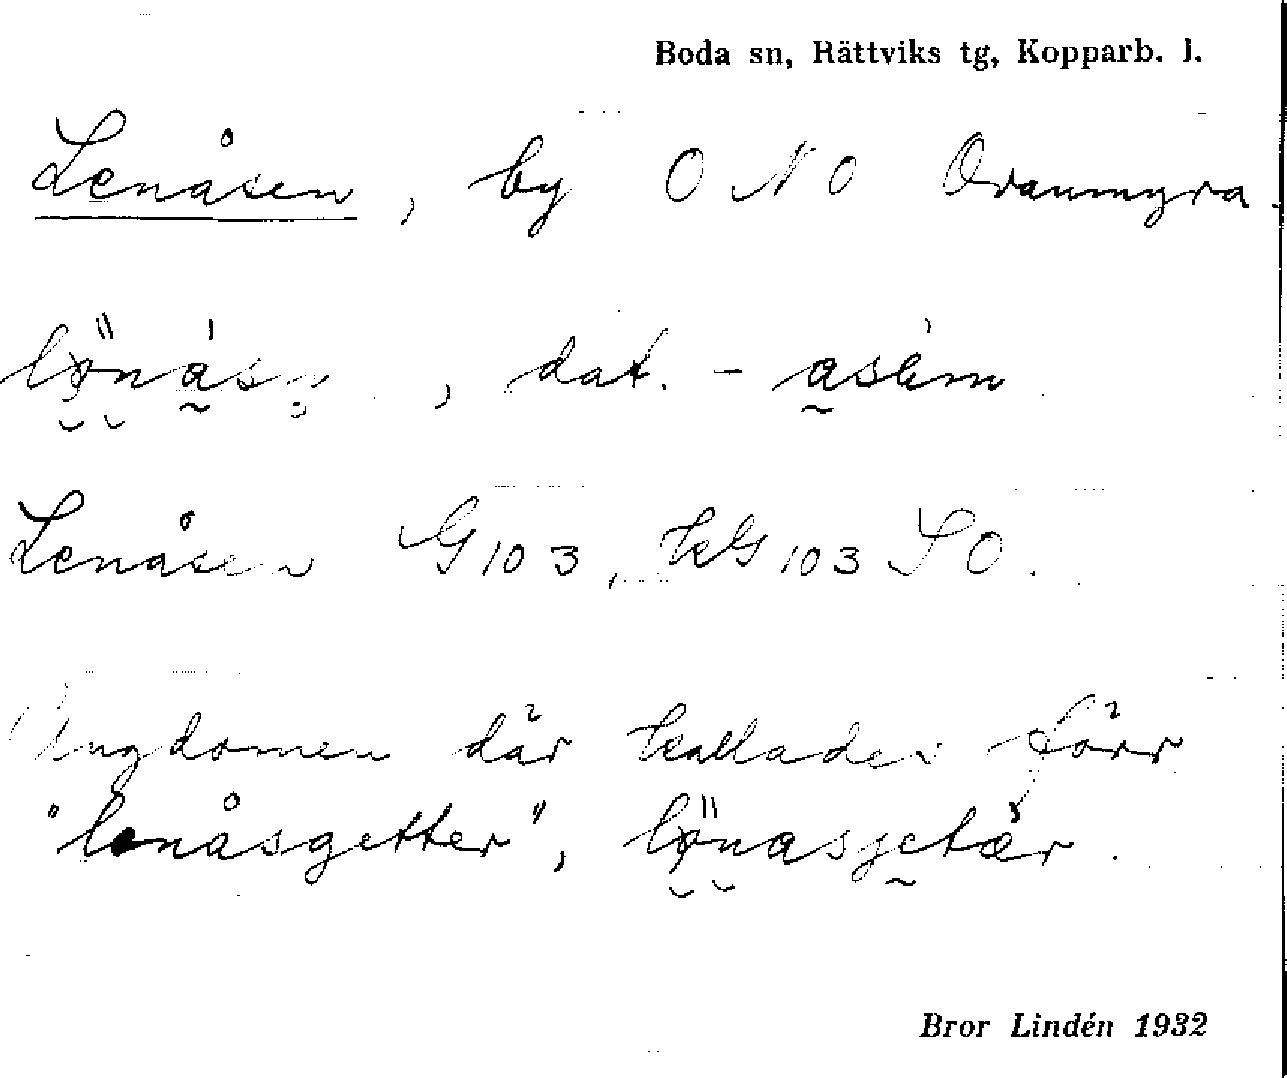 Boda sn, Rättviks tg, Kopparb. l.
Lenåsen, by O N O Ovanmyra.
, dat. -
Lenåsen G 103, kG 103 SO.
Ungdomen där kallades förr
"lenåsgetter",
Bror Lindén 1932